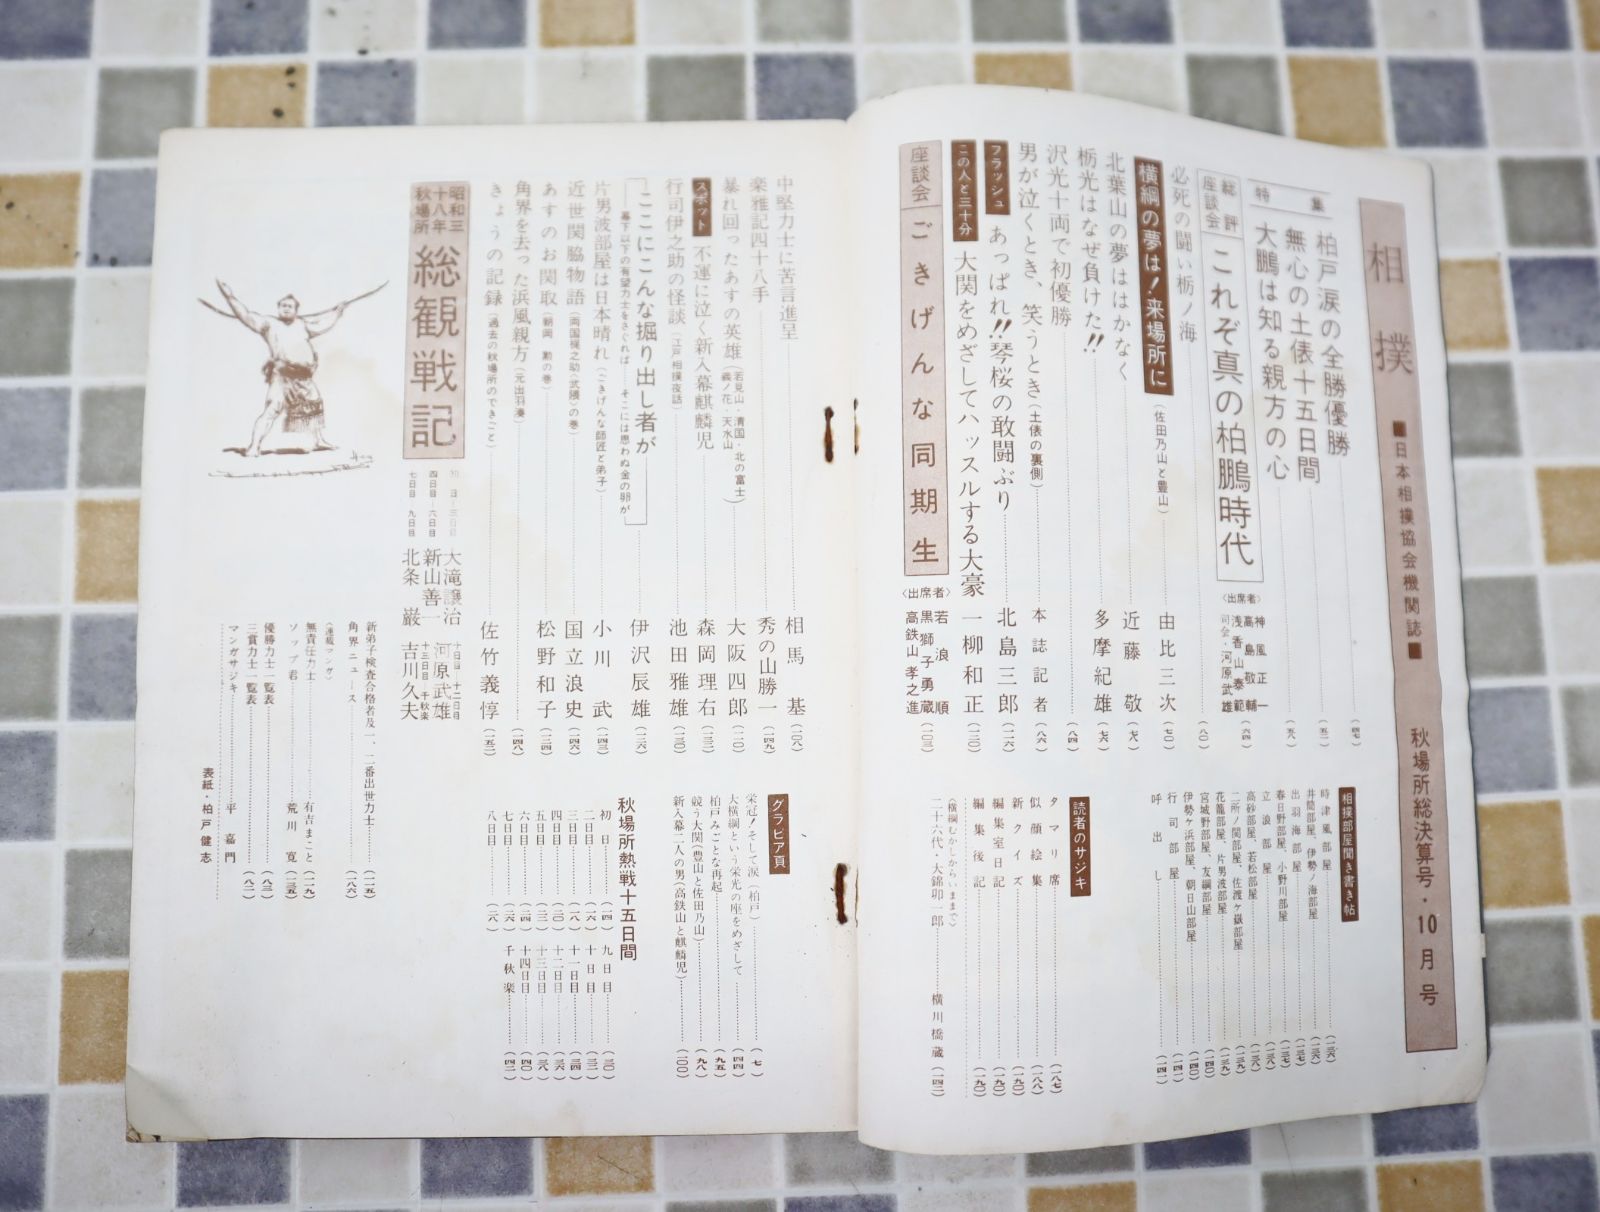 相撲
■日本相撲協会機関誌■
秋場所総決算号・10月号
特集
柏戸涙の全勝優勝（四七）
無心の土俵十五日間（五二）
大鵬は知る親方の心（五八）
総評座談会
これぞ真の柏鵬時代
〈出席者〉
神風正一
高島敬輔
浅香山泰範
司会・河原武雄（六四）
必死の闘い栃ノ海（八〇）
横綱の夢は！来場所に（佐田乃山と豊山）由比三次（七〇）
北葉山の夢ははかなく近藤敬（七八）
栃光はなぜ負けた!!多摩紀雄（七六）
沢光十両で初優勝（八四）
男が泣くとき、笑うとき（土俵の裏側）本誌記者（八六）
フラッシュ
あっぱれ!!琴桜の敢闘ぶり北島三郎（一二六）
この人と三十分
大関をめざしてハッスルする大豪一柳和正（一三〇）
座談会
ごきげんな同期生
〈出席者〉
若浪順
黒獅子勇蔵
高鉄山孝之進（一〇三）
相撲部屋聞き書き帖
時津風部屋（一三六）
井筒部屋、伊勢ノ海部屋（一三六）
出羽海部屋（一三七）
春日野部屋、小野川部屋（一三七）
立浪部屋（一三八）
高砂部屋、若松部屋（一三八）
二所ノ関部屋、佐渡ヶ嶽部屋（一三九）
花籠部屋、片男波部屋（一三九）
宮城野部屋、友綱部屋（一四〇）
伊勢ヶ浜部屋、朝日山部屋（一四〇）
行司部屋（一四一）
呼出し（一四一）
読者のサジキ
タマリ席（一八七）
似顔絵集（一八八）
新クイズ（一九〇）
編集室日記（一九〇）
編集後記（一九〇）
（横綱むかしからいままで）
二十六代・大錦卯一郎横川橋蔵（一四二）
中堅力士に苦言進呈相馬基（一〇八）
楽雅記四十八手秀の山勝一（一四九）
暴れ回ったあすの英雄（若見山・清国・北の富士）（義ノ花・天水山）大阪四郎（一二〇）
スポット
不運に泣く新入幕麒麟児森岡理右（一三二）
行司伊之助の怪談（江戸相撲夜話）池田雅雄（一三〇）
ここにこんな掘り出し者が
幕下以下の有望力士をさぐれば そこには思わぬ金の卵が
伊沢辰雄（一二六）
片男波部屋は日本晴れ（ごきげんな師匠と弟子）小川武（一四三）
近世関脇物語（両国梶之助〈武隈〉の巻）国立浪史（一四六）
あすのお関取（朝岡勲の巻）松野和子（一三四）
角界を去った浜風親方（元出羽湊）（一四八）
きょうの記録（過去の秋場所のできごと）佐竹義惇（一五二）
昭和三十八年秋場所
総観戦記
初日－三日目大滝譲治
四日目－六日目新山善一
七日目－九日目北条巌
十日目－十二日目河原武雄
十三日目－千秋楽吉川久夫
グラビア頁
栄冠！そして涙（柏戸）（七）
大横綱という栄光の座をめざして（四四）
柏戸みごとな再起（九五）
競う大関（豊山と佐田乃山）（九八）
新入幕二人の男（高鉄山と麒麟児）（一〇〇）
秋場所熱戦十五日間
初日（一四）九日目（三〇）
二日目（一六）十日目（三二）
三日目（一八）十一日目（三四）
四日目（二〇）十二日目（三六）
五日目（二二）十三日目（三八）
六日目（二四）十四日目（四〇）
七日目（二六）千秋楽（四二）
八日目（二八）
新弟子検査合格者及一、二番出世力士（一一五）
角界ニュース（一八六）
（連載マンガ）
無責任力士有吉まこと（一一九）
ソップ君荒川寛（一三五）
優勝力士一覧表（八三）
三賞力士一覧表（八二）
マンガサジキ平嘉門
表紙・柏戸健志